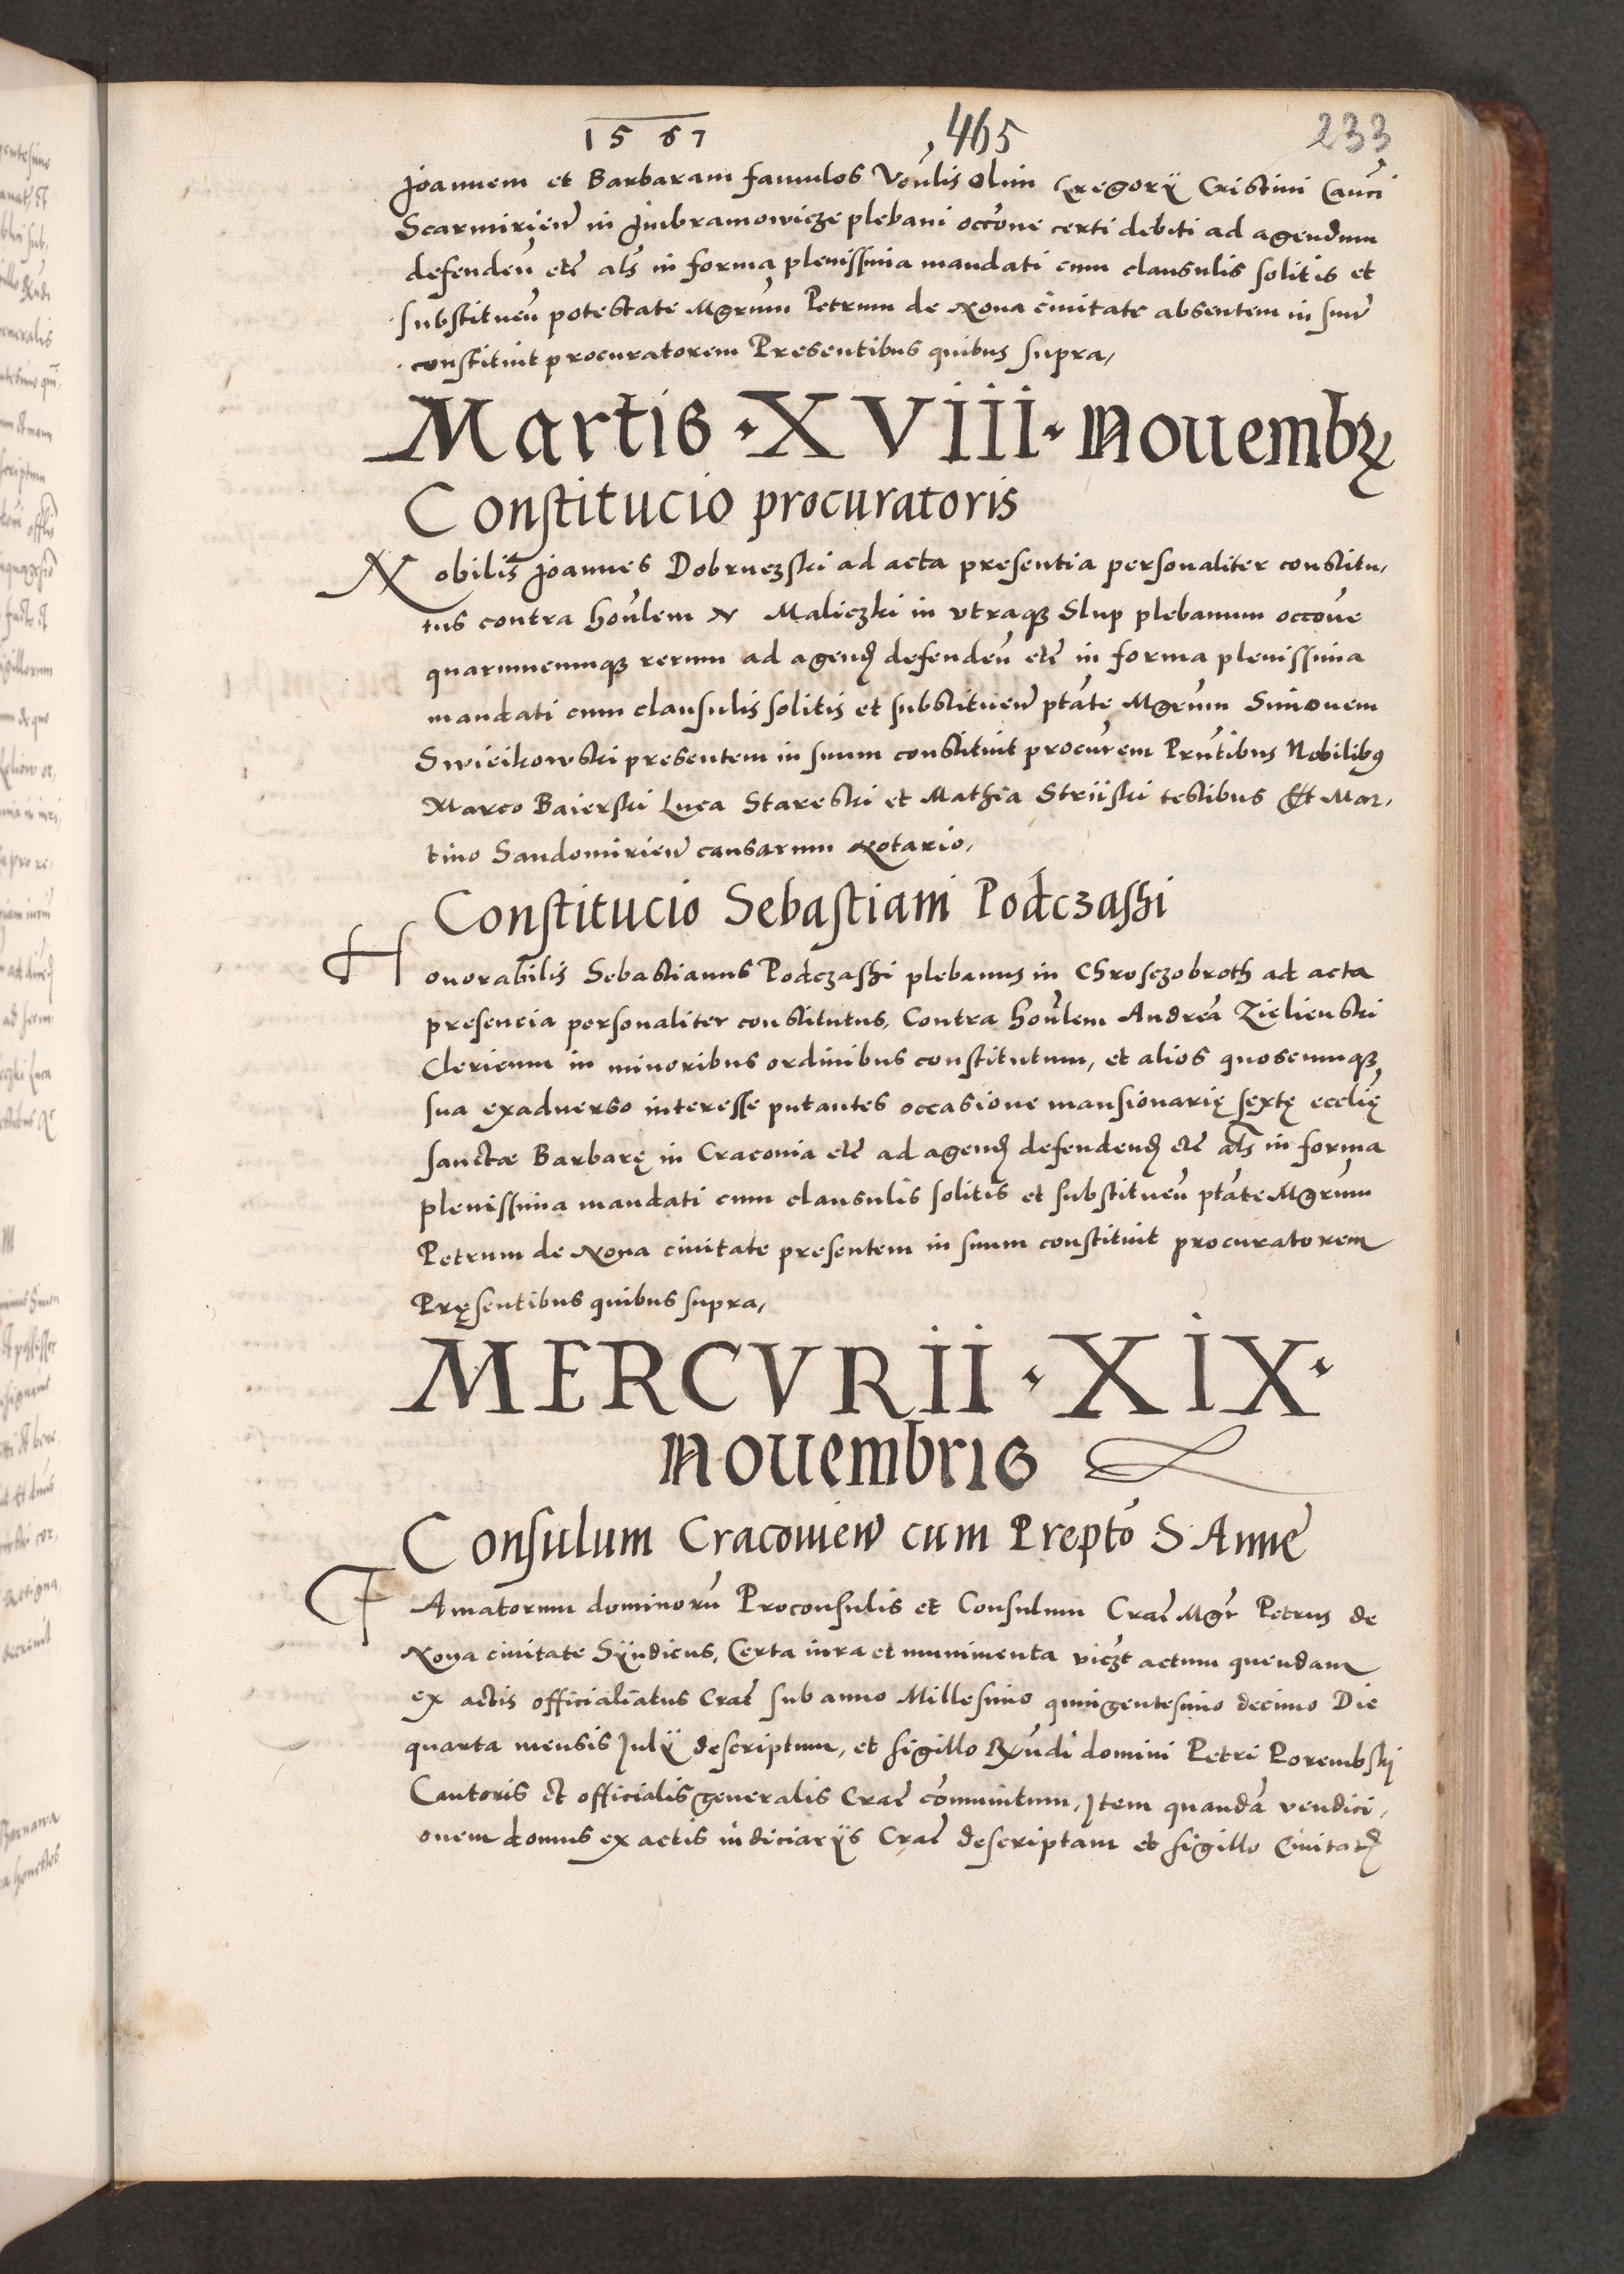 1567
465
233
Joannem et Barbaram famulos Venlis olim Gregorÿ Cristini Canci
Scarmirien in Jmbramowicze plebani occone certi debiti ad agendum
defenden etc als in forma plenissima mandati cum clausulis solitis et
substituen potestate Mgrum Petrum de Nona ciuitate absentem in suu
constituit procuratorem Presentibus quibus supra,
Martis · XVIII · Nouembr
Constitucio procuratoris
Nobilis Joannes Dobruczski ad acta presentia personaliter constitu,
tus contra honlem N Maliczki in vtraqz Slup plebanum occone
quarumcumqz rerum ad agend defenden etc in forma plenissima
mandati cum clausulis solitis et substituen ptate Mgrum Simonem
Swieikowski presentem in suum constituit procurem Prntibus Nobilibus
Marco Baierski Luca Stareski et Mathia Striiski testibus Et Mar,
tino Sandomirien causarum Notario,
Constitucio Sebastiani Podczasski
Honorabilis Sebastianus Podczasski plebanus in Chrosczobroth ad acta
presencia personaliter constitutus, Contra honlem Andrea Zielienski
Clericum in minoribus ordinibus constitutum, et alios quoscumqz
sua exaduerso interesse putantes occasione mansionarię sextę ecclię
sanctæ Barbarę in Craconia etc ad agend defendend etc als in forma
plenissima mandati cum clausulis solitis et substituen ptate Mgrum
Petrum de Nona ciuitate presentem in suum constituit procuratorem
Pręsentibus quibus supra,
MERCVRII · XIX ·
Nouembris
Consulum Cracouien cum Prepto S Anne
FAmatorum dominoru Proconsulis et Consulum Crac Mgr Petrus de
Nona ciuitate Sÿndicus, Certa iura et munimenta viczt actum quendam
ex actis officialiatus Crac sub anno Millesimo quingentesimo decimo Die
quarta mensis Julÿ descriptum, et sigillo Rxndi domini Petri Porembskj
Cantoris et officialis generalis Crac comunitum, Jtem quanda vendici,
onem domus ex actis iudiciarÿs Crac descriptam et sigillo Ciuitat